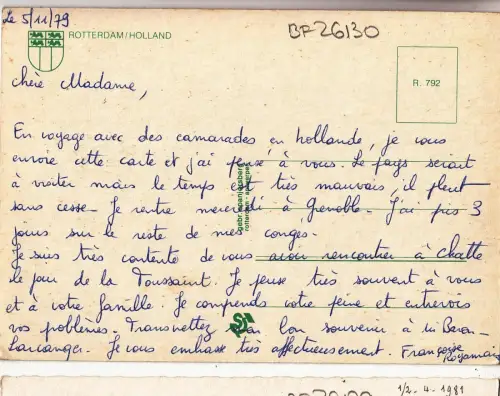 Le 5/11/79
ROTTERDAM/HOLLAND
BF26130
R. 792
chère Madame,
En voyage avec des camarades en hollande, je vous
envoie cette carte et j'ai pensé à vous. Le pays serait
à visiter mais le temps est très mauvais, il pleut
sans cesse. Je rentre mercredi à Grenoble. J'ai pris 3
jours sur le reste de mes congés.
Je suis très contente de vous avoir rencontrer à Chatte
le jour de la Toussaint. Je pense très souvent à vous
et à votre famille. Je comprends votre peine et entrevois
vos problèmes. Transmettez mon bon souvenir à
Je vous embrasse très affectueusement. Françoise
1/2-4-1981